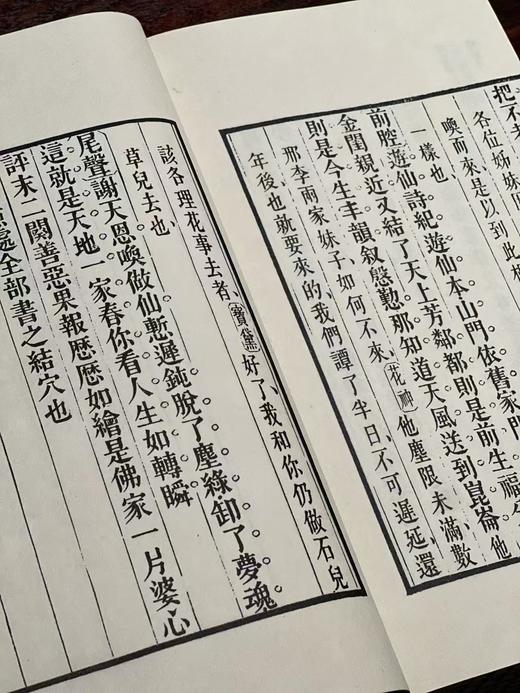 把不去
各位姊妹
喚而來是以到此
一樣也
前腔遊仙詩紀遊仙本山門依舊家門
金閨親近又結了天上芳鄰都則是前生福
則是今生丰韻叙慇懃那知道天風送到崑崙他
邢李兩家妹子如何不來花神他塵限未滿數
年後也就要來的我們譚了半日不可遲延還
該各理花事去者寶黛好了我和你仍做石兒
草兒去也
尾聲謝天恩喚做仙慙遲鈍脫了塵緣卸了夢魂
這就是天地一家春你看人生如轉瞬
評末二闋善惡果報歷歷如繪是佛家一片婆心
處全部書之結穴也